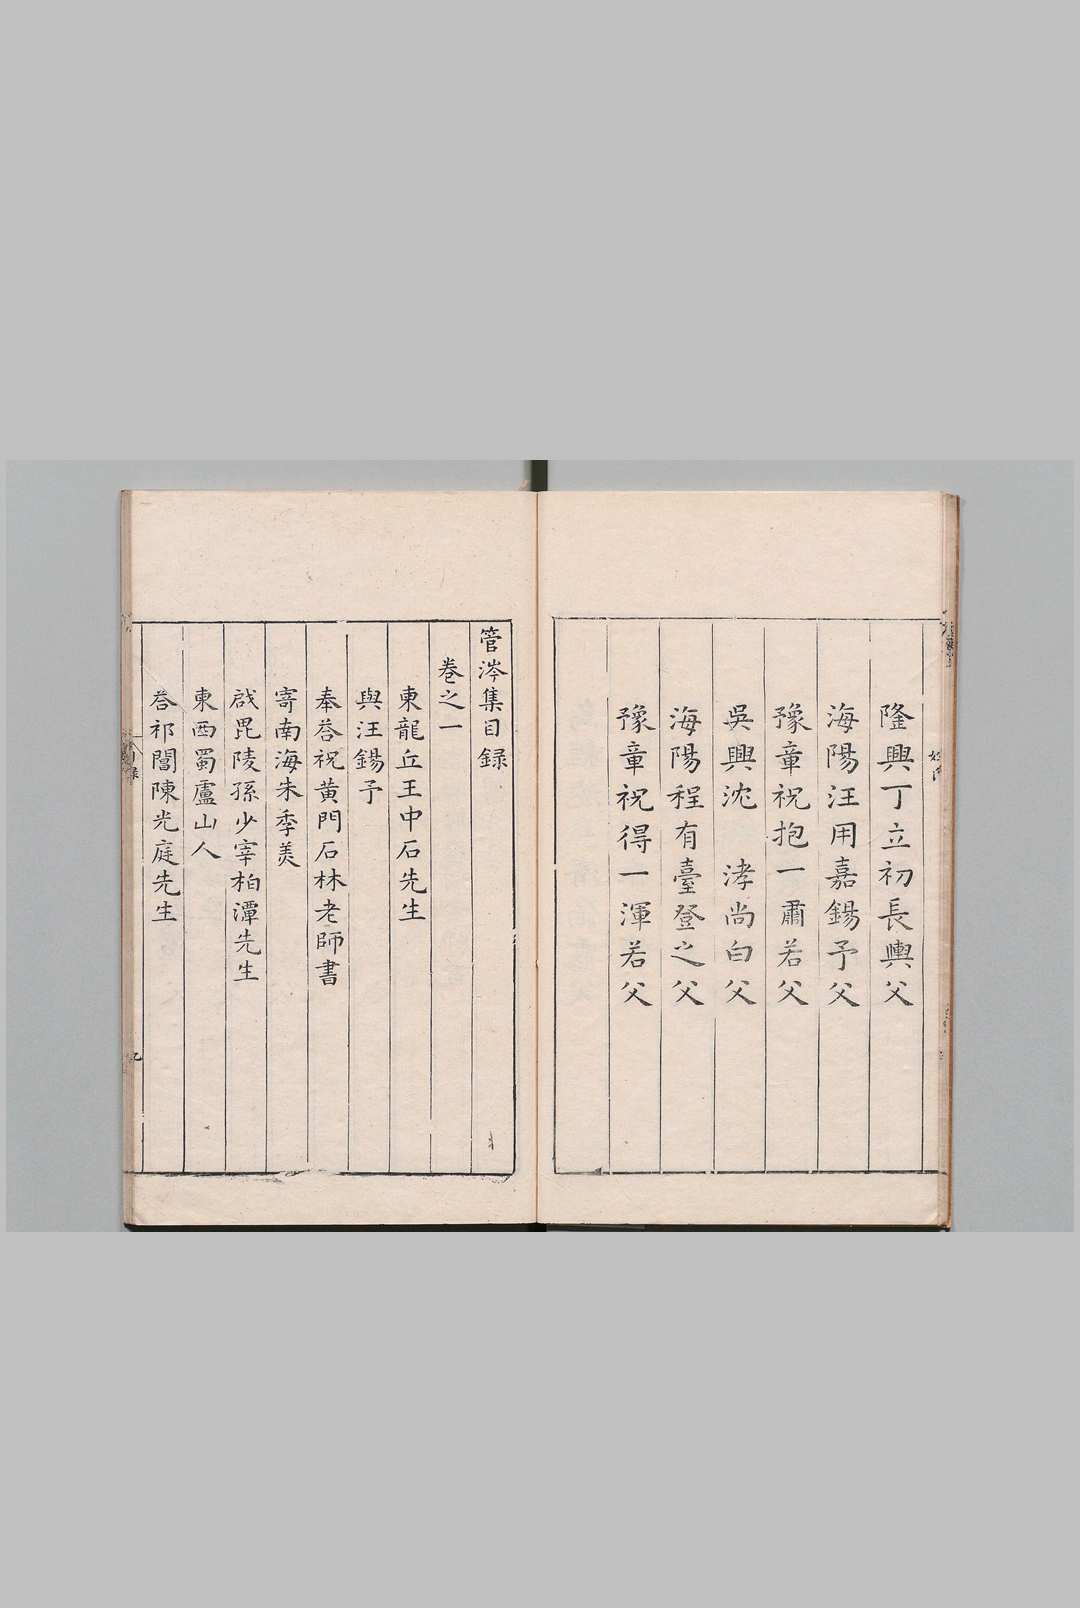 隆興丁立初長輿父
海陽汪用嘉錫予父
豫章祝抱一肅若父
吳興沈 浡尚白父
海陽程有臺登之父
豫章祝得一渾若父
管涔集目録
卷之一
東龍丘王中石先生
與汪錫予
奉荅祝黃門石林老師書
寄南海朱季羙
啟毘陵孫少宰柏潭先生
東西蜀盧山人
荅祁閶陳光庭先生